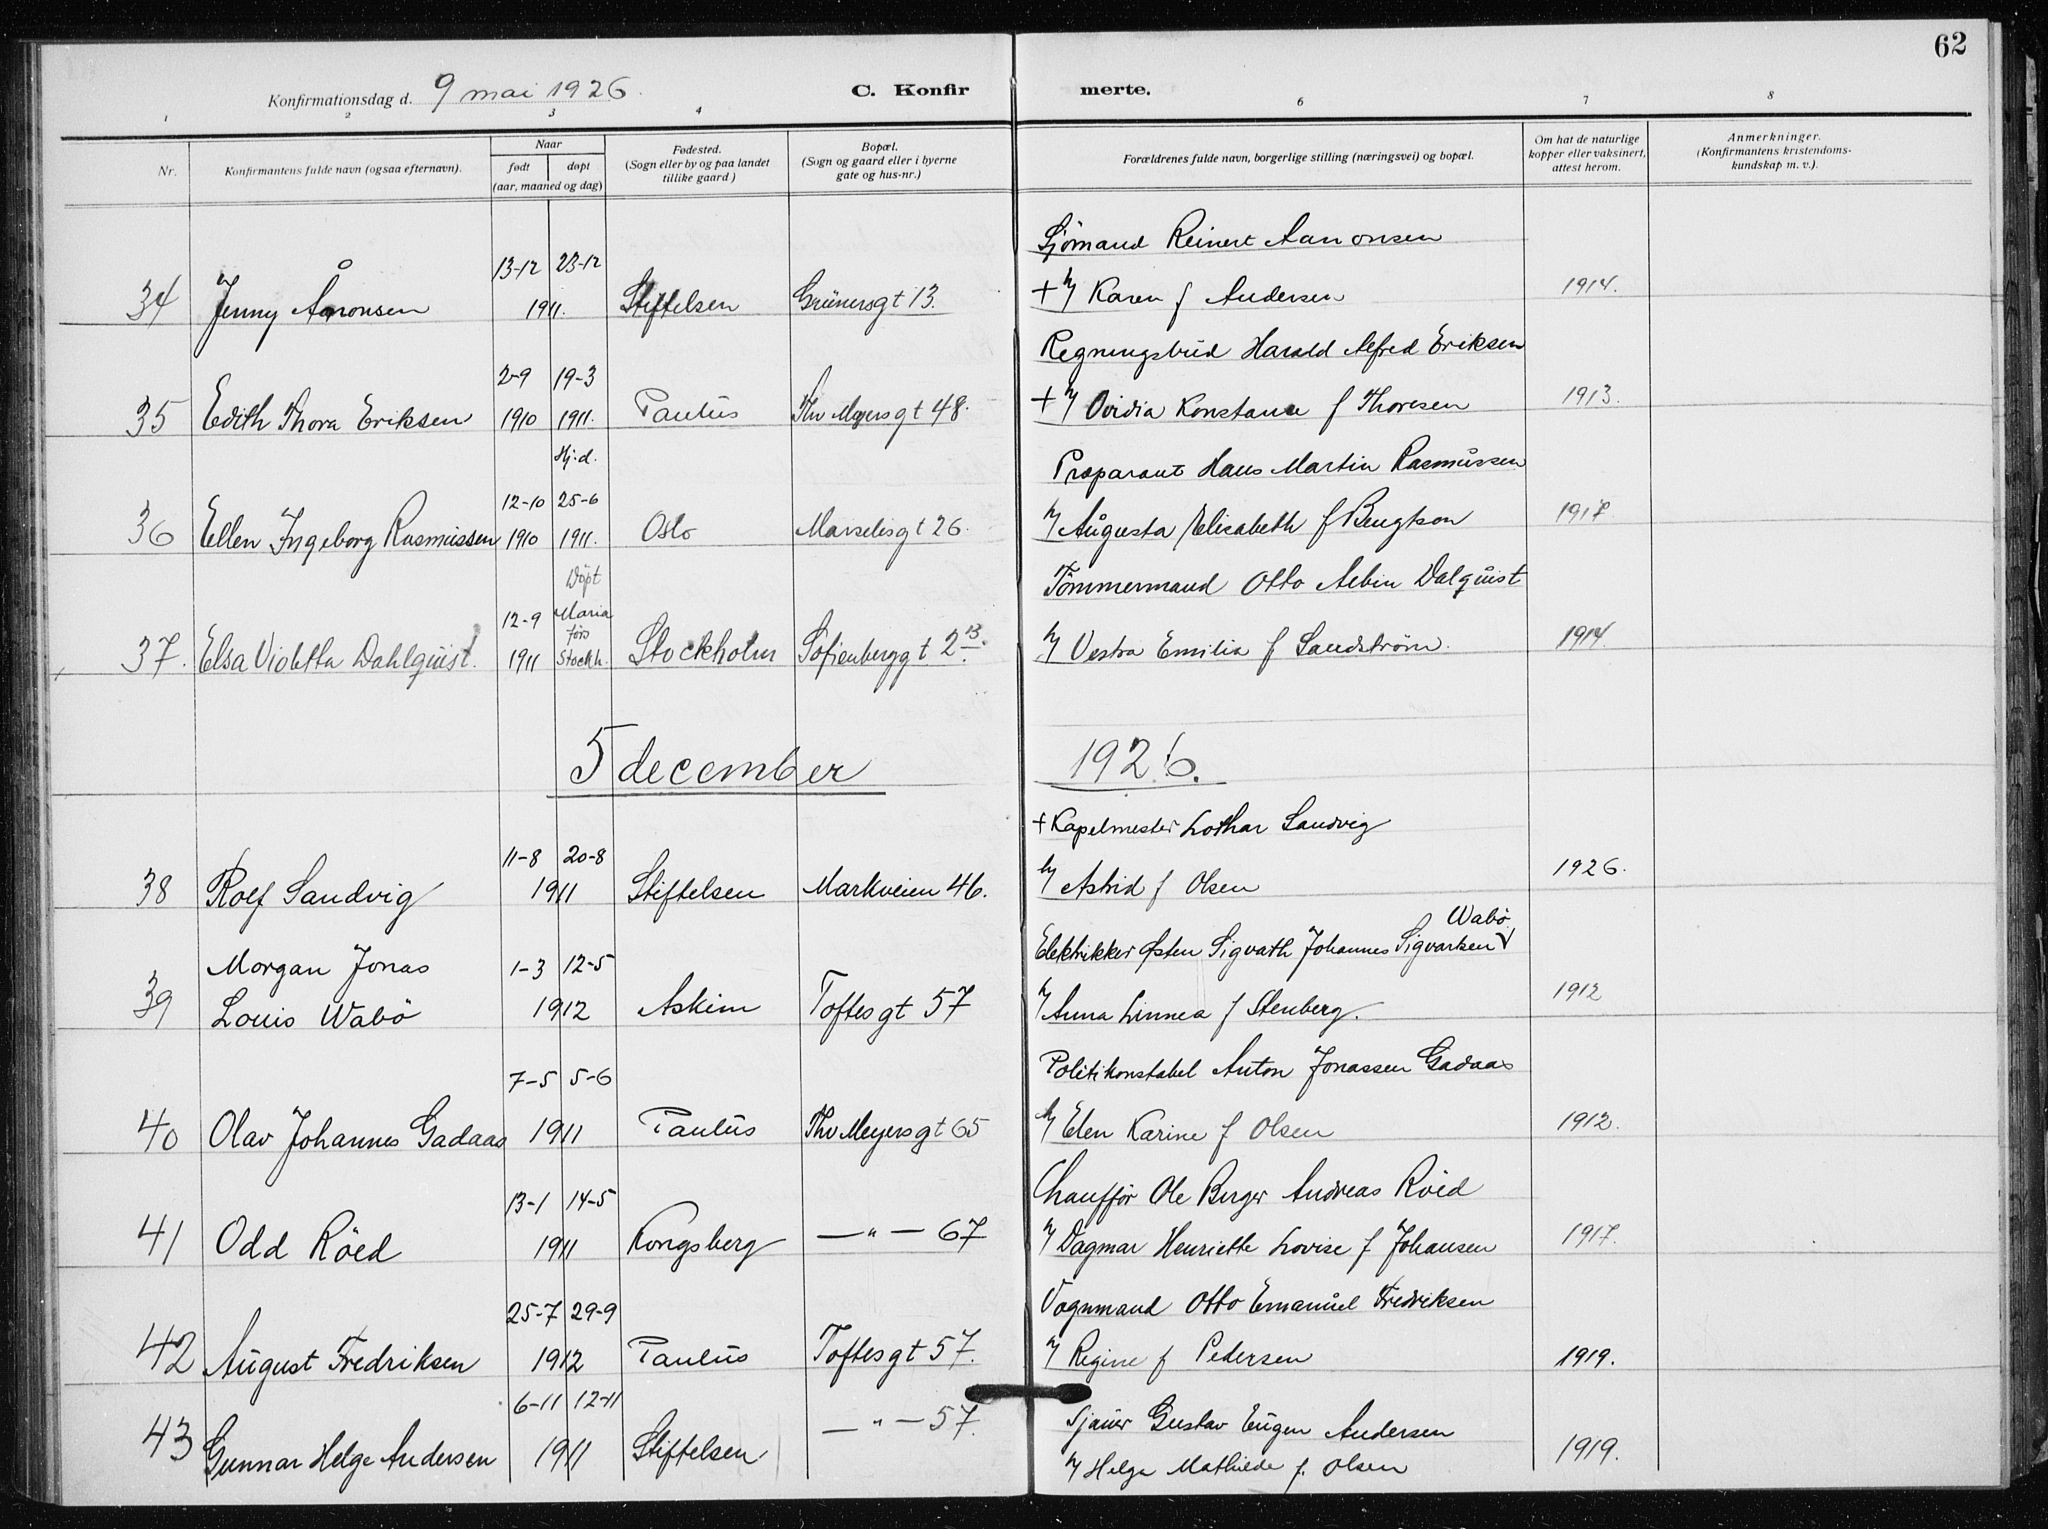 62
Konfirmationsdag d. 9 mai 1926. C. Konfirmerte.
1 2 3 4 6 7 8
Nr. Konfirmantens fulde navn (ogsaa efternavn). Naar født døpt (aar, maaned og dag) Fødested. (Sogn eller by og paa landet tillike gaard) Bopæl. (Sogn og gaard eller i byerne gate og hus-nr.) Forældrenes fulde navn, borgerlige stilling (næringsvei) og bopæl. Om hat de naturlige kopper eller vaksinert, attest herom. Anmerkninger. (Konfirmantens kristendomskundskap m. v.).
Sjömand Reinert Aanonsen
13-12 23-12
34 Jenny Aanonsen 1911. Stiftelsen Grünersgt 13. + Karen f Andersen 1914.
Regningsbud Harald Alfred Eriksen
2-9 19-3
35 Edith Thora Eriksen 1910 1911. Paulus Thv Meyersgt 48. + Ovidia Konstance f Thoresen 1913.
Hj.d. Præparant Hans Martin Rasmussen
12-10 25-6
36 Ellen Ingeborg Rasmussen 1910 1911. Oslo Marselisgt 26. Augusta Elisabeth f Bengtson
Döpt Tömmermand Otto Albin Dalquist
12-9 Maria förs
37. Elsa Violetta Dahlquist. 1911 Stockh. Stockholm Sofienberggt 2 13. Vestra Emilia f Sandström. 1914.
5 december 1926.
+ Kapelmester Lothar Sandvig
11-8 20-8
38 Rolf Sandvig 1911 Stiftelsen Markveien 46. Astrid f Olsen 1926.
Wabö
Elektrikker Østen Sigvath Johannes Sigvartsen
39 Morgan Jonas 1-3 12-5
Louis Wabö 1912 Askim Toftesgt 57 Anna Linnea f Stenberg. 1912
Politikonstabel Anton Jonassen Gadaas
7-5 5-6
40 Olav Johannes Gadaas 1911 Paulus Thv Meyersgt 65 Elen Karine f Olsen 1912.
Chaufför Ole Berger Andreas Röed
13-1 14-5
41 Odd Röed 1911 Kongsberg — " — 67 Dagmar Henriette Lovise f Johansen 1917.
Vognmand Otto Emanuel Fredriksen
25-7 29-9
42 August Fredriksen 1912 Paulus Toftesgt 57. Regine f Pedersen 1919.
6-11 12-11 Sjauer Gustav Eugen Andersen
43 Gunnar Helge Andersen 1911 Stiftelsen — " — 57. Helga Mathilde f. Olsen 1919.